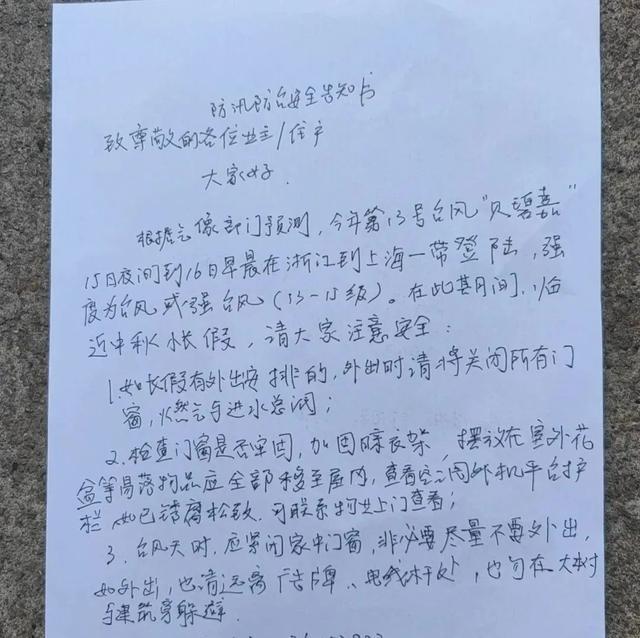 防汛防台安全告知书
致尊敬的各位业主/住户
大家好.
根据气像部门预测,今年第13号台风"贝碧嘉"
15日夜间到16日早晨在浙江到上海一带登陆,强
度为台风或强台风(13-15级)。在此其月间,临
近中秋小长假,请大家注意安全:
1.如长假有外出安排的,外出时请将关闭所有门
窗,火然气与进水总阀;
2.检查门窗是否牢固,加固晾衣架,摆放在室外花
盆等易落物品应全部移至屋内,查看空调外机平台护
栏如已锈腐松动.可联系物业上门查看;
3.台风天时.应紧闭家中门窗,非必要尽量不要外出,
如外出,也请远离广告牌、电线杆处,也勿在大树
与建筑旁躲避.